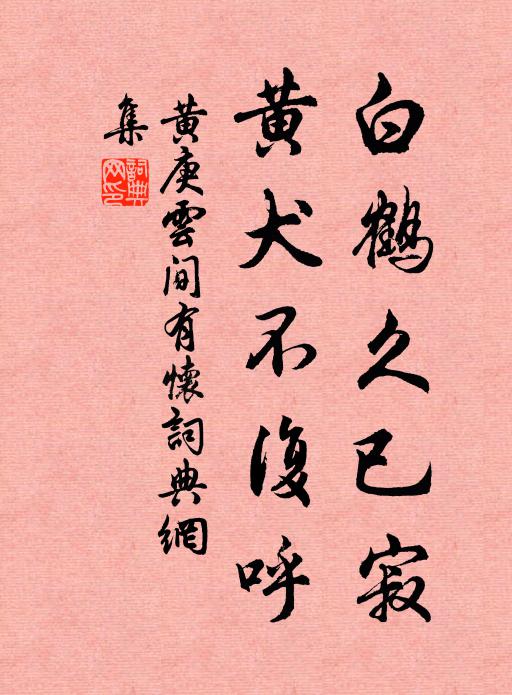 白鶴久已寂
黄犬不復呼
黄庚雲间有懷詞典網
集
詞典網印